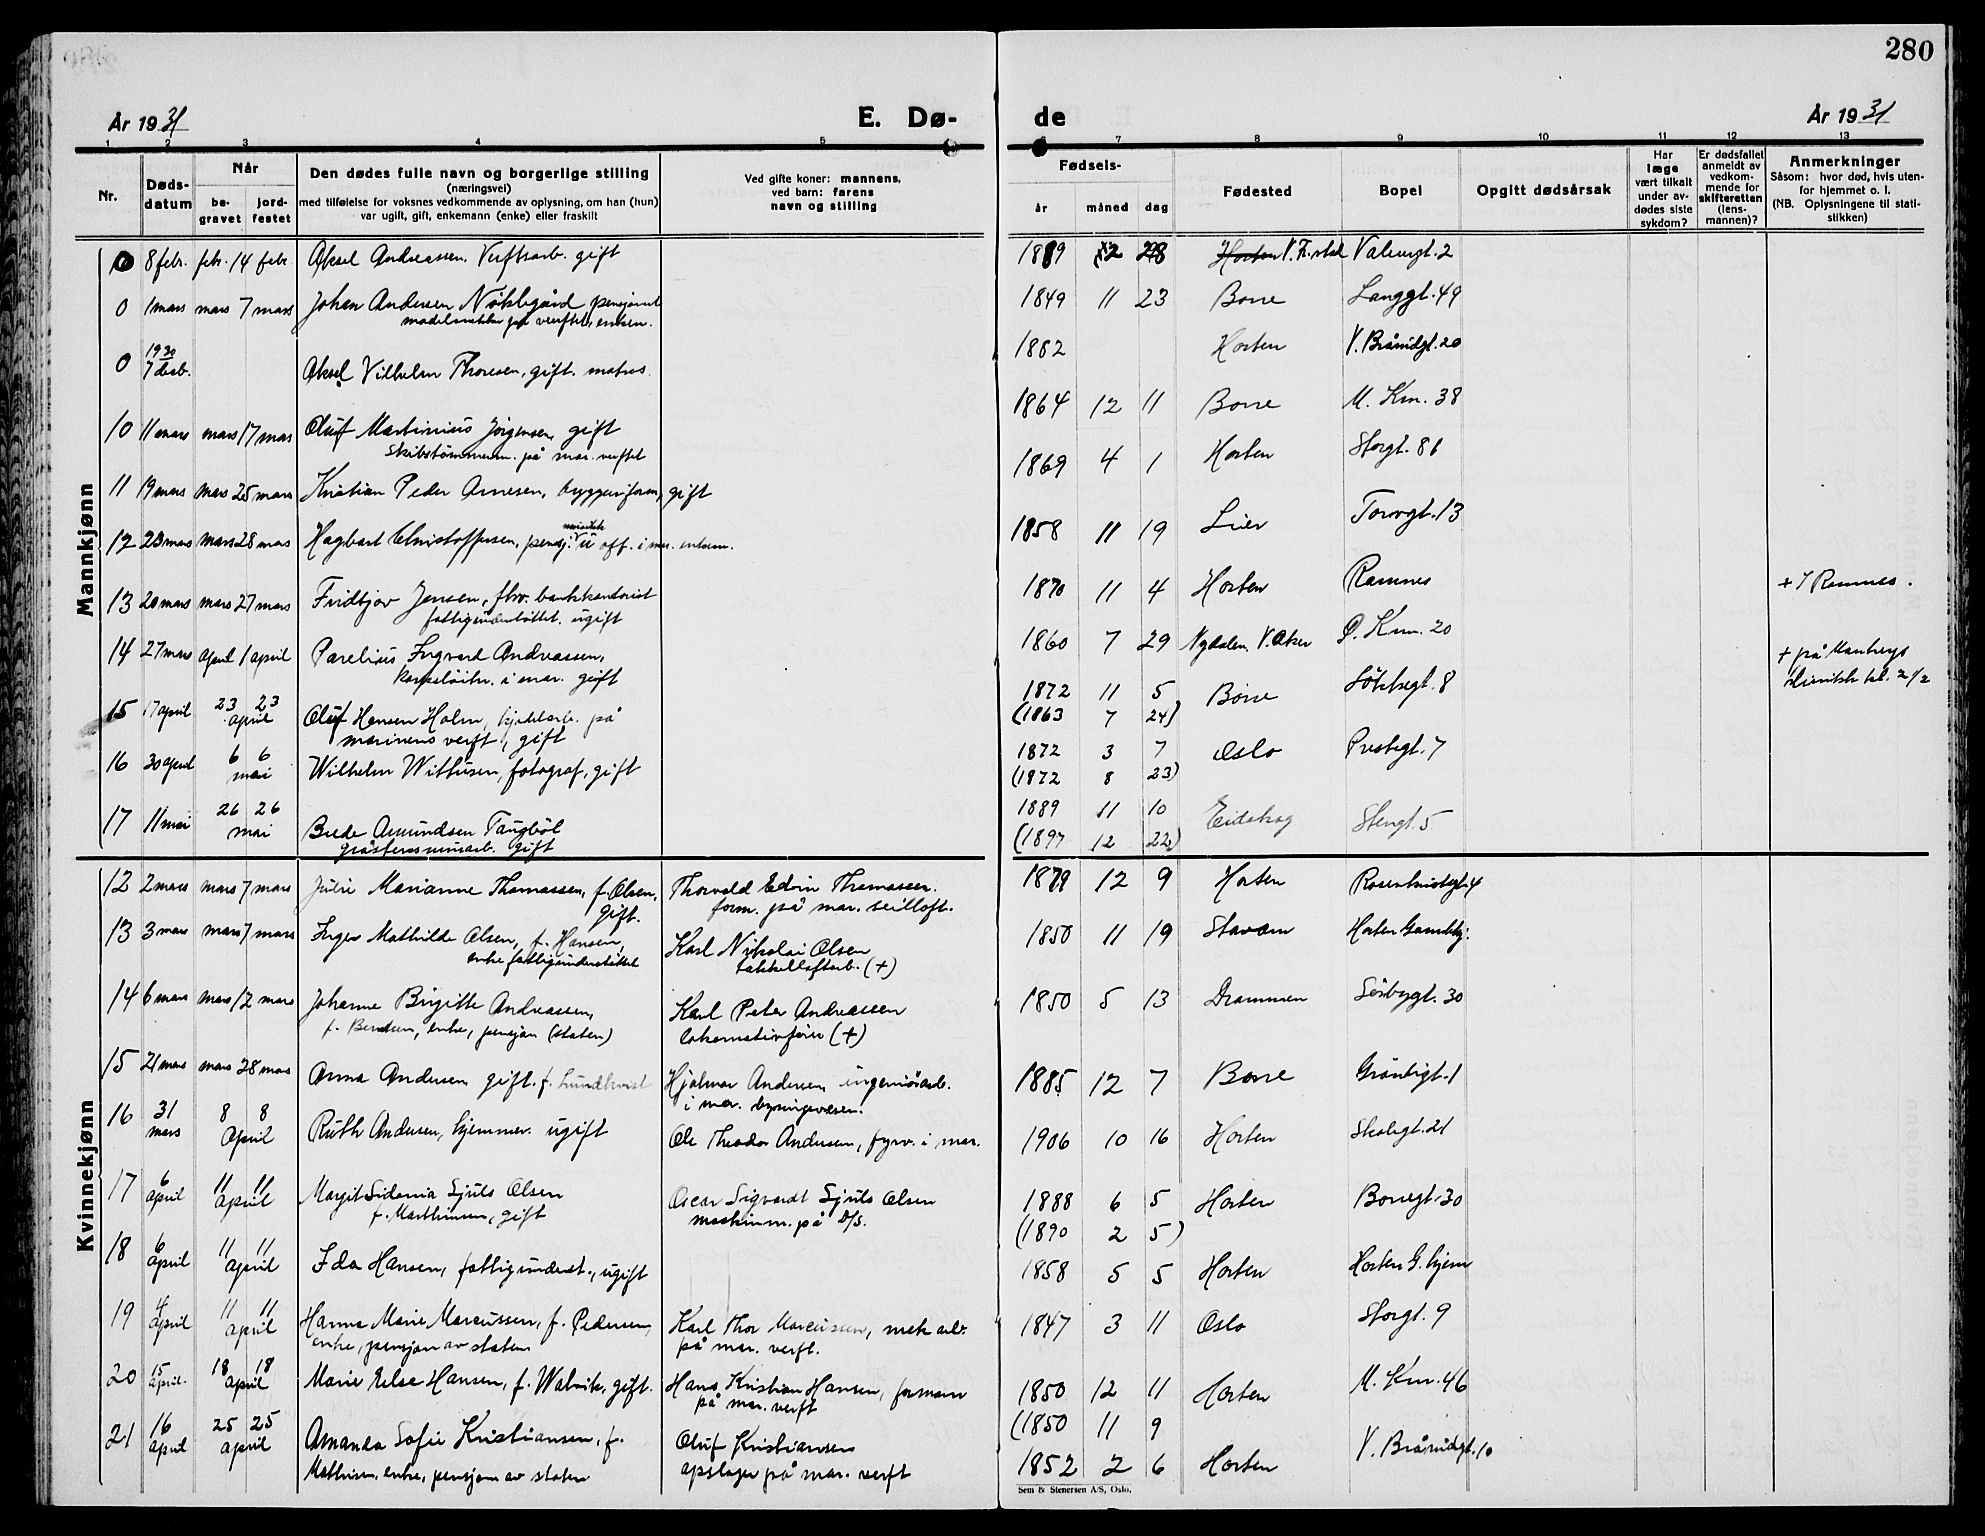 280
År 1931
E. Dø-
de
År 1931
1 2 3 4 5 6 7 8 9 10 11 12 13
Nr.
Døds-
datum
Når
be-
gravet
jord-
festet
Den dødes fulle navn og borgerlige stilling
(næringsvei)
med tilføielse for voksnes vedkommende av oplysning, om han (hun)
var ugift, gift, enkemann (enke) eller fraskilt
Ved gifte koner: mannens,
ved barn: farens
navn og stilling
Fødsels-
år måned dag
Fødested
Bopel
Opgitt dødsårsak
Har
læge
vært tilkalt
under av-
dødes siste
sykdom?
Er dødsfallet
anmeldt av
vedkom-
mende for
skifteretten
(lens-
mannen)?
Anmerkninger
Såsom: hvor død, hvis uten-
for hjemmet o. l.
(NB. Oplysningene til stati-
stikken)
Mannkjønn
0 8 febr. febr. 14 febr. Aksel Andreassen. Verftsarb. gift 1889 12 28 Horten Valengt. 2
0 1 mars mars 7 mars Johan Andersen Nøklegård pensjonert 1849 11 23 Borre Langgt. 49
på verftet, enkem.
0 1930
7 desb. Aksel Vilhelm Thoresen, gift. matros. 1882 Horten V. Bråridgt. 20
10 11 mars mars 17 mars Oluf Martinius Jørgensen, gift 1864 12 11 Borre M. Km. 38
Skibstømmerm. på mar. verftet
11 19 mars mars 25 mars Kristian Peder Arnesen, bryggeriform, gift 1869 4 1 Horten Storgt. 86
12 23 mars mars 28 mars Hagbart Christoffersen, pensj. U off. i mar. enkem. 1858 11 19 Lier Torvgt. 13
13 20 mars mars 27 mars Fridtjov Jensen, fhv. bankkontorist 1870 11 4 Horten Ramnes + I Ramnes.
fattigunderstøttet. ugift
14 27 mars april 1 april Parelius Ingvard Andreassen, 1860 7 29 Nydalen, V. Aker P. Km. 20
i mar. gift
+ på
kl. 2 1/2
15 17 april 23 23
april Oluf Hansen Holm, kjedelarb. på 1872 11 5 Borre 8
marinens verft, gift (1863 7 24)
16 30 april 6 6
mai Wilhelm Withusen, fotograf, gift 1872 3 7 Oslo Prestegt. 7
(1872 8 23)
17 11 mai 26 26
mai Brede Amundsen Taugbøl 1889 11 10 Eidskog Stengt. 5
gift (1897 12 22)
Kvinnekjønn
12 2 mars mars 7 mars Julie Marianne Thomassen, f. Olsen, Thorvald Edvin Thomassen. 1879 12 9 Horten 4
gift. form. på mar. seilloft.
13 3 mars mars 7 mars Inger Mathilde Olsen, f. Hansen, Karl Nikolai Olsen 1850 11 19 Stavern Horten Gamlehj.
enke fattigunderstøttet takkelloftarb. (+)
14 6 mars mars 12 mars Johanne Birgitte Andreassen, Karl Peter Andreassen 1850 5 13 Drammen Seibygt. 30
f. Berntsen, enke, pensjon (staten) lokomotivfører (+)
15 21 mars mars 28 mars Anna Andersen gift. f. Lundkvist Hjalmar Andersen, ingeniørarb. 1885 12 7 Borre Grøntlgt. 1
i mar. bygningsvesen.
16 31
mars 8 8
April Ruth Andersen, hjemmev. ugift Ole Theodor Andersen, fyrv. i mar. 1906 10 16 Horten Skolegt. 21
17 6
april 11 11
april Margit Sidonia Sjuls Olsen Oscar Sigvardt Sjuls Olsen 1888 6 5 Horten Borregt. 30
f. Marthinsen, gift maskinm. på D/S. (1890 2 5)
18 6
april 11 11
april Ida Hansen, fattigunderst., ugift 1858 5 5 Horten Horten G. hjem
19 4
april 11 11
april Hanna Marie Marcussen, f. Pedersen, Karl Thor Marcussen, mek arb. 1847 3 11 Oslo Storgt. 9
enke, pensjon av staten på mar. verft.
20 15
april. 18 18
april Marie Else Hansen, f. Walvik, gift. Hans Kristian Hansen, formann 1850 12 11 Horten M. Km. 46
på mar. verft (1850 11 9
21 16
april 25 25
april Amanda Sofie Kristiansen, f. Oluf Kristiansen 1852 2 6 Horten V. Bråridgt. 10
Mathisen, enke, pensjon av staten opslager på mar. verft
Sem & Stenersen A/S, Oslo.